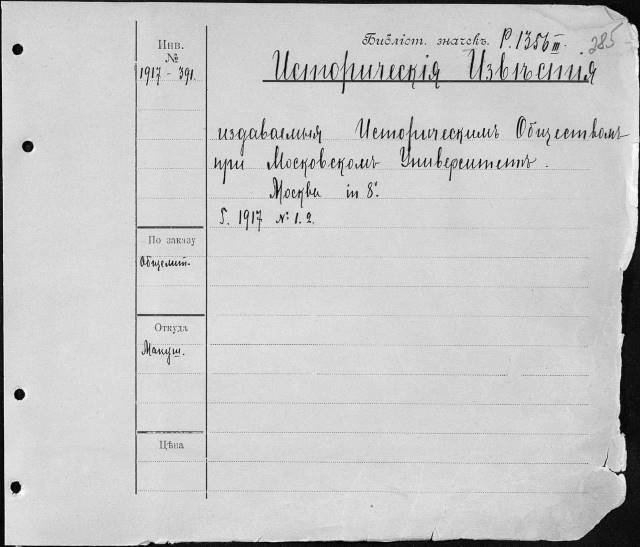 Библіот. значекъ. P. 1356 III. 285
Инв.
№
1917 - 391.
Историческія Извѣстія
издаваемыя Историческимъ Обществомъ
при Московскомъ Университетѣ.
Москва in 8°.
1917 №: 1. 2.
По заказу
Откуда
Макуш.
Цѣна